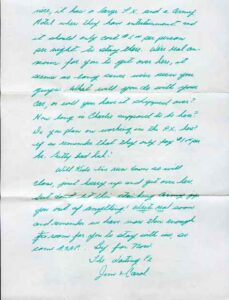 nice, it has a large P.X. and a Army
Hotel where they have entertainment and
it should only cost $1.50 per person
per night to stay there. We're real an-
xious for you to get over here, it
seems so long since we've seen you
guys. What will you do with your
car, or will you have it shipped over?
How long is Charlie supposed to be here?
Do you plan on working in the P.X. here?
if so remember that they only pay
hr. Pretty bad ha!
Will Kids I'm near
close, just hurry up and get over here,
but don't let this stinking Army gyp
you out of anything! Write real soon
and remember we have more than enough
room for you to stay with us, so
come A.S.A.P. By for Now
The Lasting
Jim & Carol